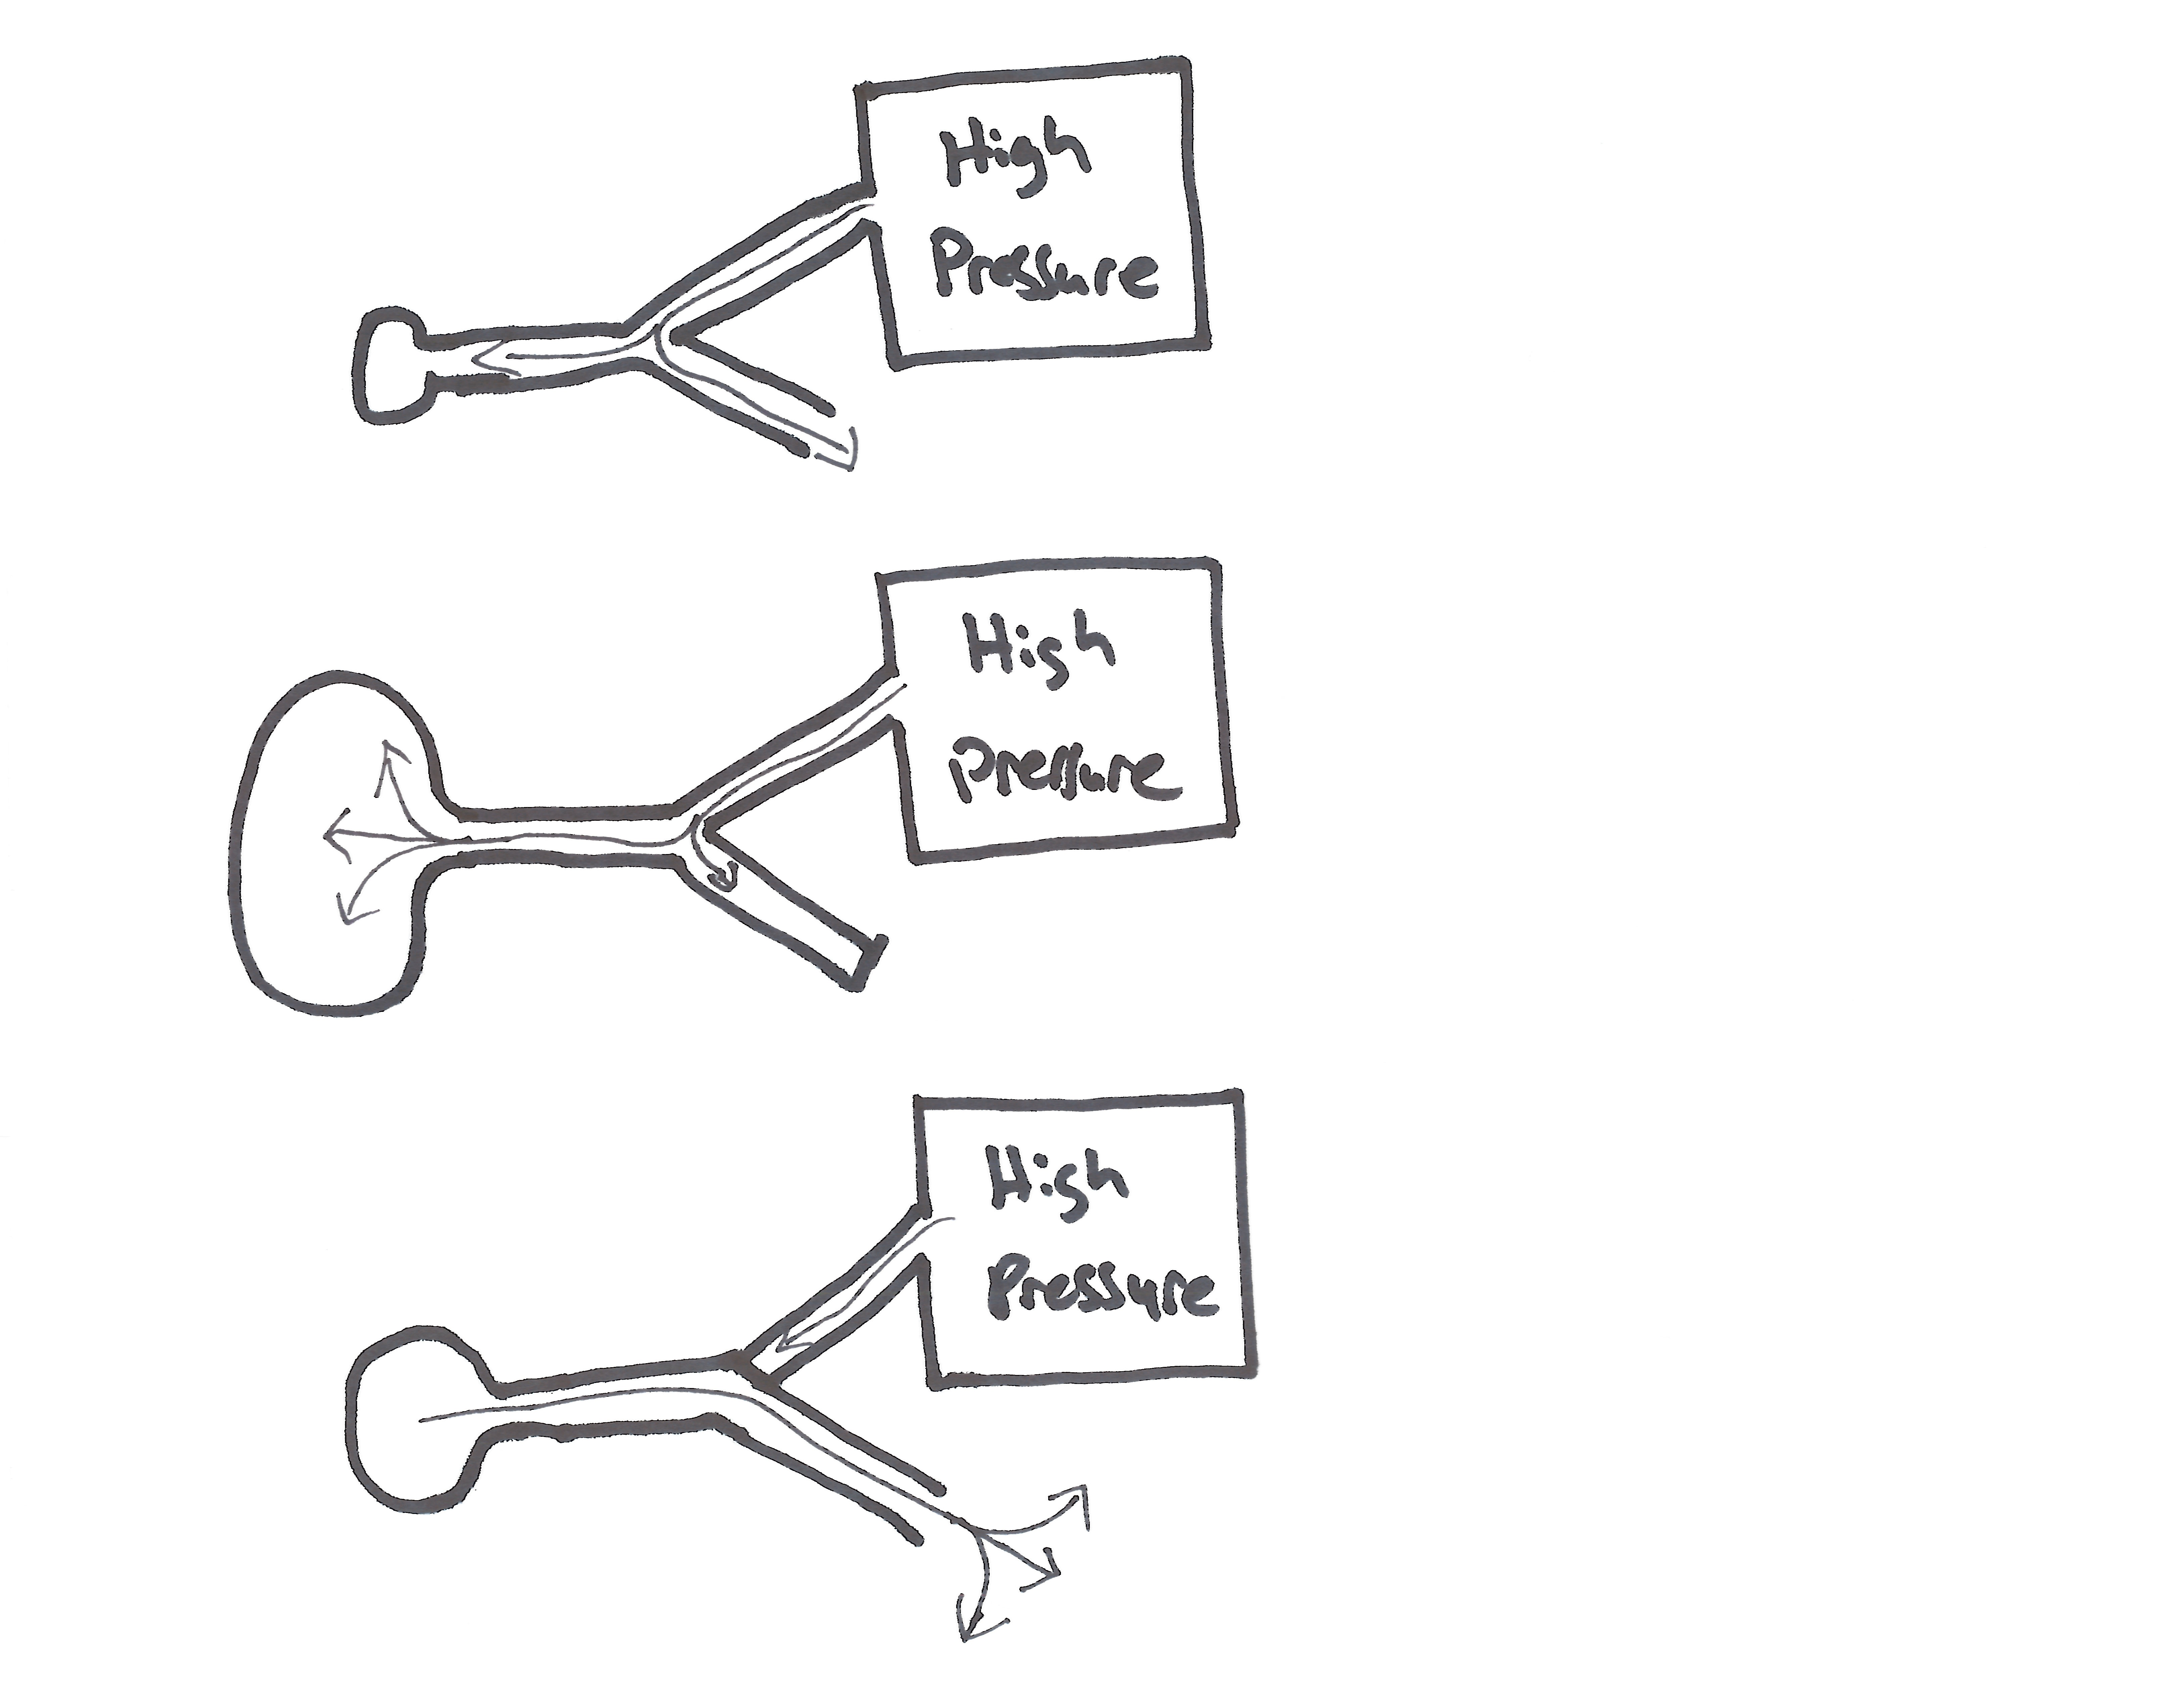 High
Pressure
High
Pressure
High
Pressure